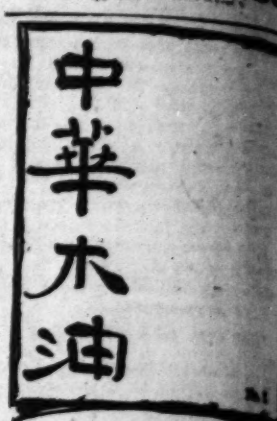 中華木油